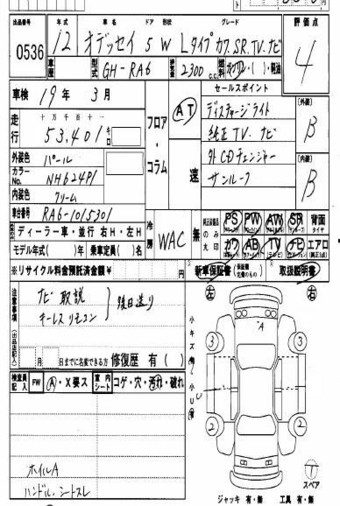 出品番号 年式 車名 ドア 形状 グレード 評価点
0536 12 オデッセイ 5 W Lタイプ カワ.SR.TV.ナビ 4
車歴 型式 GH-RA6 排気量 2300 燃料 ガソリン・( )・軽油
車検 19年 3月 セールスポイント
走行 十万千百十一 53,401 キロ フロア・コラム AT 速
ディスチャージライト
純正TV.ナビ
外CDチェンジャー
サンルーフ
(外装) B
(内装) B
外装色 パール
カラーNo. NH624P1
内装色 クリーム
車台番号 RA6-1015301
ディーラー車・並行 右H・左H
モデル年式( )年 乗車定員( )名
冷房 WAC 無
PS PW AW SR 背面タイヤ
カワ AB TV ナビ エアロ
※リサイクル料金預託済金額¥ 円
新車保証書 取扱説明書
注意事項
ナビ取説
キーレスリモコン
後日送り
月 日までに名変できる方 修復歴 有( )
検査員記入 FW A・X要ス 室内シート コゲ・穴・汚れ・破れ
小キズ
左 右
A
3 3
U
2 2
ホイルA
ハンドル.シートスレ
スペア
ジャッキ 有・無 工具 有・無